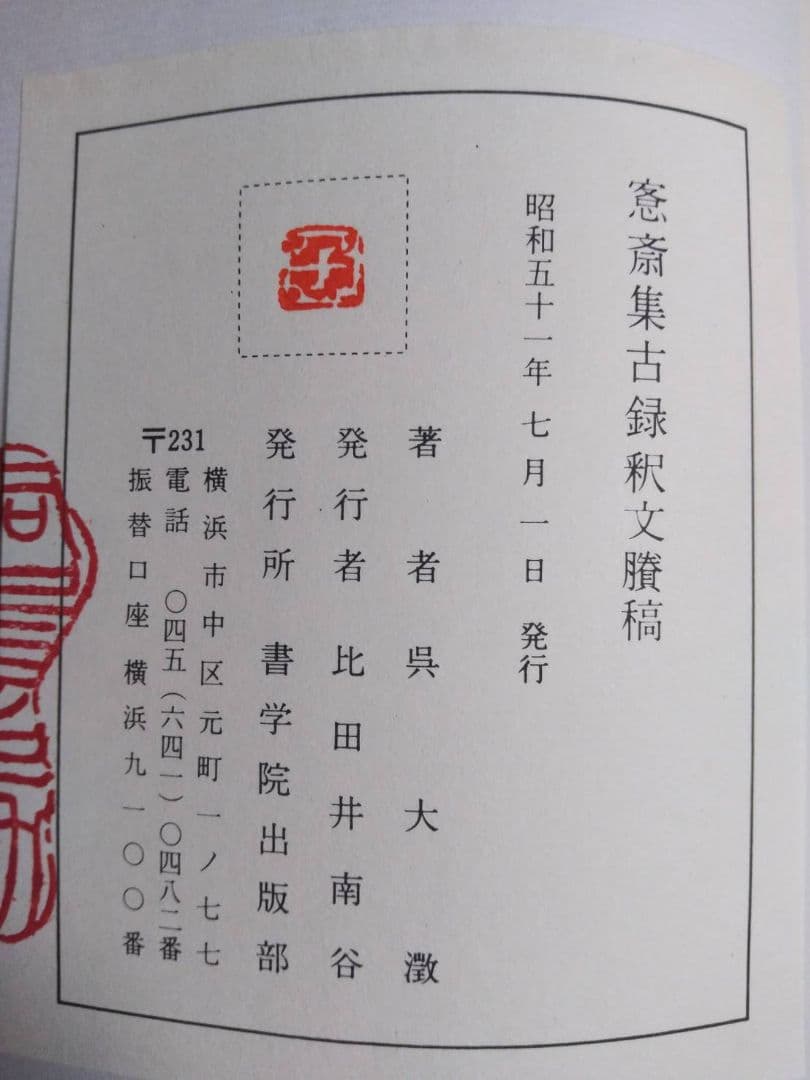 愙斎集古録釈文賸稿
昭和五十一年 七月一日 発行
著者 呉大澂
発行者 比田井南谷
発行所 書学院出版部
〒231
横浜市中区元町一ノ七七
電話 〇四五(六四一)〇四八二番
振替口座横浜九一〇〇番